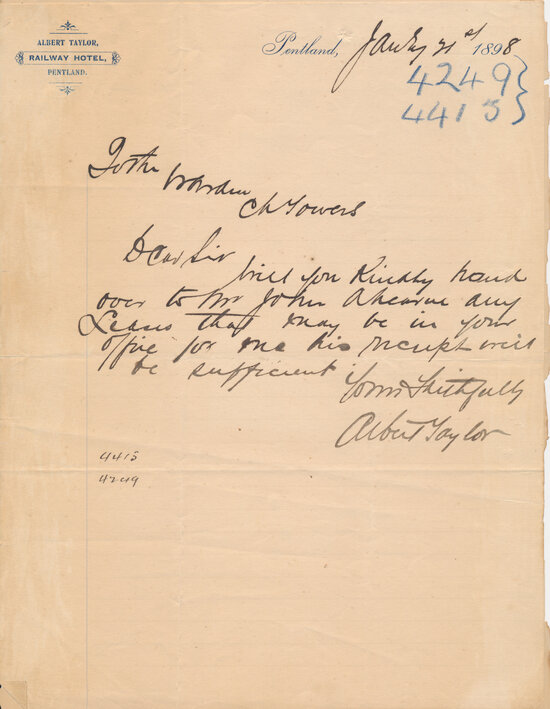 ALBERT TAYLOR,
RAILWAY HOTEL,
PENTLAND.
Pentland, Jany 21st 1898
4249
4415
To the
Warden
Ch Towers
Dear Sir
Will you Kindly hand
over to Mr John Ahearne any
Leases that may be in your
office for me his receipt will
be sufficient
Yours Faithfully
Albert Taylor
4415
4249